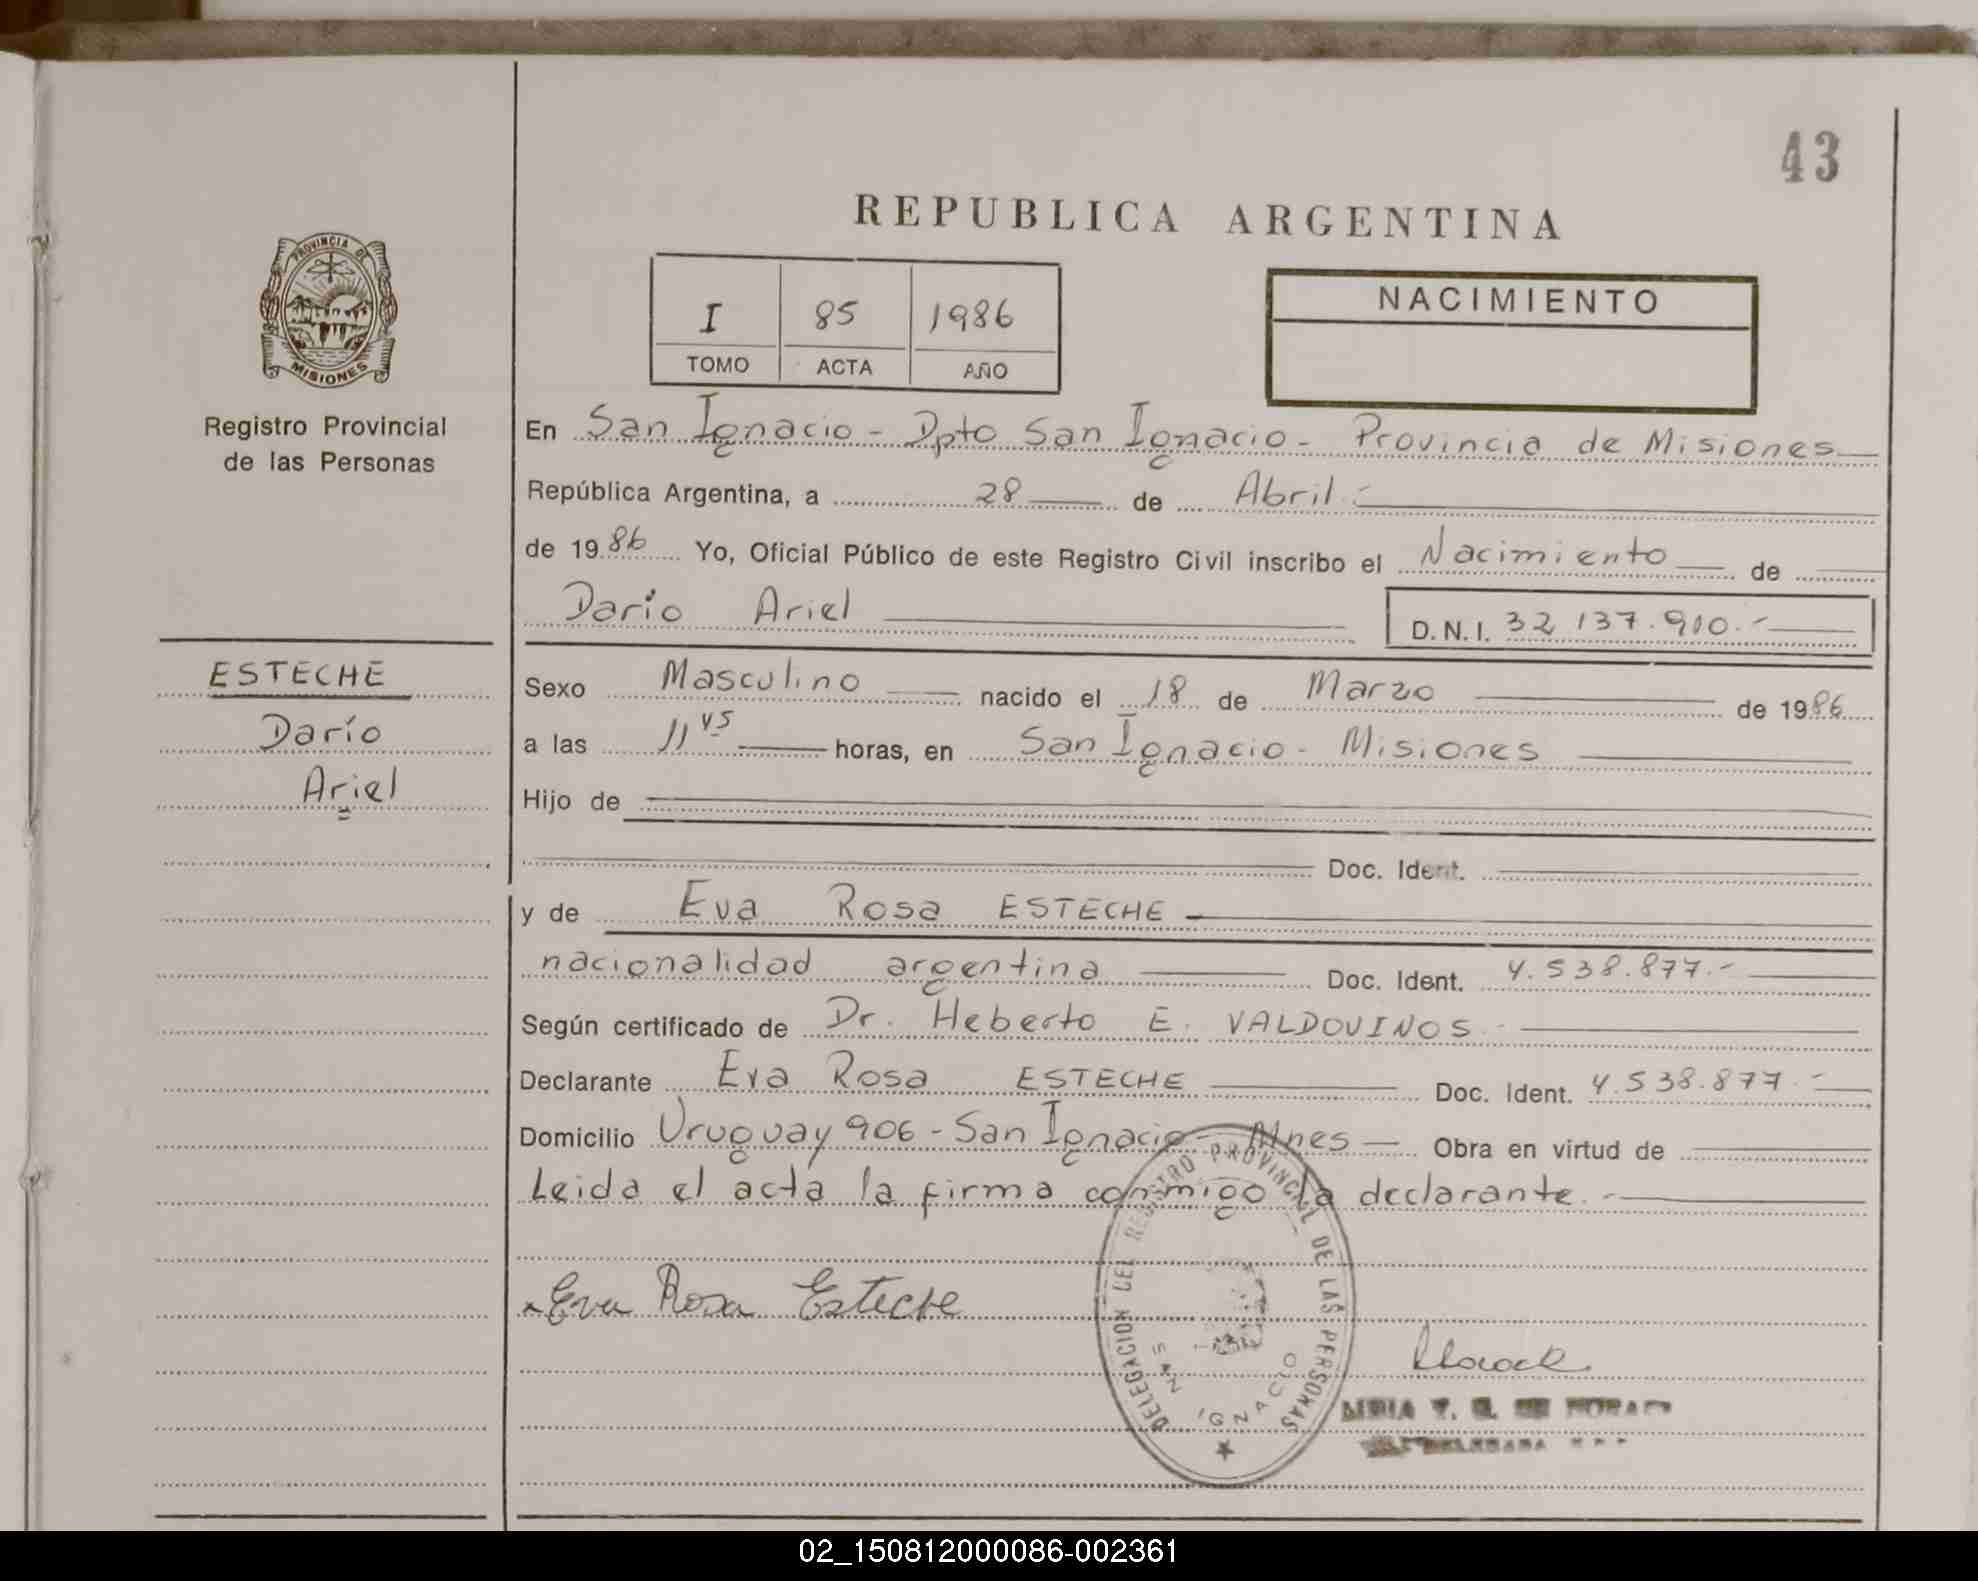 43
REPUBLICA ARGENTINA
PROVINCIA DE
MISIONES
Registro Provincial
de las Personas
I 85 1986
TOMO ACTA AÑO
NACIMIENTO
En San Ignacio - Dpto San Ignacio - Provincia de Misiones
República Argentina, a 28 de Abril.-
de 1986 Yo, Oficial Público de este Registro Civil inscribo el Nacimiento de
Darío Ariel D.N.I. 32 137.910.-
ESTECHE
Darío
Ariel
Sexo Masculino nacido el 18 de Marzo de 1986
a las 11 45 horas, en San Ignacio - Misiones
Hijo de
Doc. Ident.
y de Eva Rosa ESTECHE
nacionalidad argentina Doc. Ident. 4.538.877.-
Según certificado de Dr. Heberto E. VALDOVINOS.-
Declarante Eva Rosa ESTECHE Doc. Ident. 4.538.877.-
Domicilio Uruguay 906 - San Ignacio - Mnes Obra en virtud de
Leida el acta la firma conmigo la declarante.-
Eva Rosa Esteche
DELEGACION DEL REGISTRO PROVINCIAL DE LAS PERSONAS
SAN IGNACIO
02_150812000086-002361